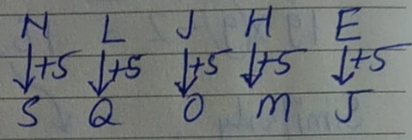 N L J H E
↓+5 ↓+5 ↓+5 ↓+5 ↓+5
S Q O M J